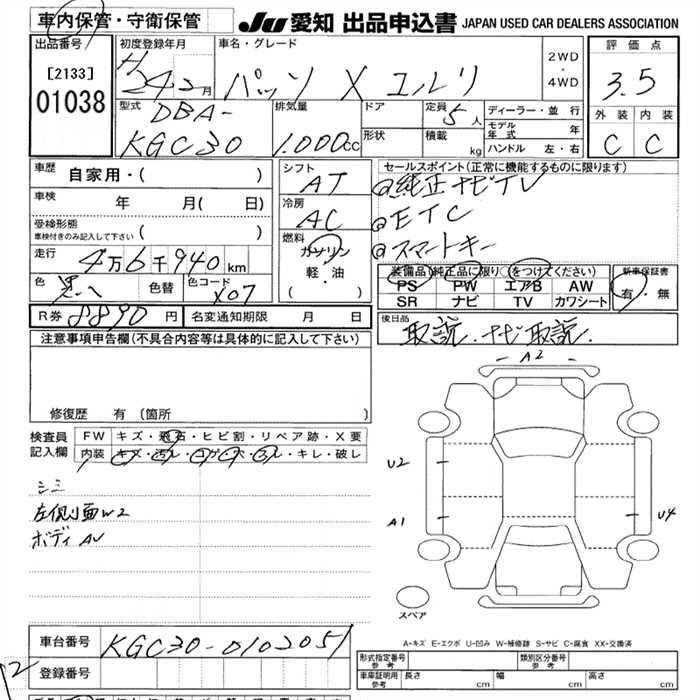 車内保管・守衛保管
JU 愛知 出品申込書 JAPAN USED CAR DEALERS ASSOCIATION
出品番号
[2133]
01038
初度登録年月
H 24.2月
車名・グレード
パッソ X ユルリ
2WD
・
4WD
評価点
3.5
外装 内装
C C
型式
DBA-
KGC30
排気量
1.000cc
ドア
形状
定員 5人
積載 kg
ディーラー・並行
モデル年式 年
ハンドル 左・右
車歴
自家用・( )
車検
年 月( 日)
受検形態
車検付きのみ記入して下さい ( )
走行 4万6千940km
色 黒 色替 色コード X07
シフト
AT
冷房
AC
燃料
ガソリン
軽・油
(・ )
セールスポイント(正常に機能するものに限ります)
純正ナビTV
ETC
スマートキー
装備品(純正品に限り○をつけてください)
PS PW エアB AW
SR ナビ TV カワシート
新車保証書
有・無
R券 8890円 名変通知期限 月 日
後日品
取説.ナビ取説.
注意事項申告欄(不具合内容等は具体的に記入して下さい)
修復歴 有 (箇所 )
検査員
記入欄
FW キズ・飛石・ヒビ割・リペア跡・X要
内装 キズ・汚レ・コゲ・穴・スレ・キレ・破レ
シミ
左側面W2
ボディAU
A2
U2
A1
U4
スペア
A-キズ E-エクボ U-凹み W-補修跡 S-サビ C-腐食 XX-交換済
車台番号 KGC30-0102051
登録番号
12
形式指定番号 参考
類別区分番号 参考
車庫証明用 参考 長さ cm 幅 cm 高さ cm